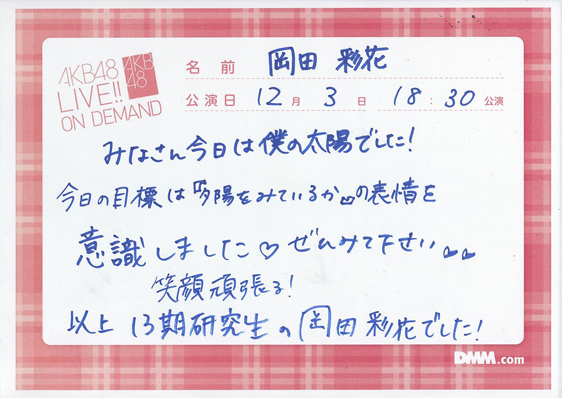 AKB48
LIVE!!
ON DEMAND
AKB
48
名前 岡田 彩花
公演日 12月 3日 18:30公演
みなさん今日は僕の太陽でした!
今日の目標は『夕陽をみているか』の表情を
意識しました♡ぜひみて下さい
笑顔頑張る!
以上 13期研究生の岡田彩花でした!
DMM.com